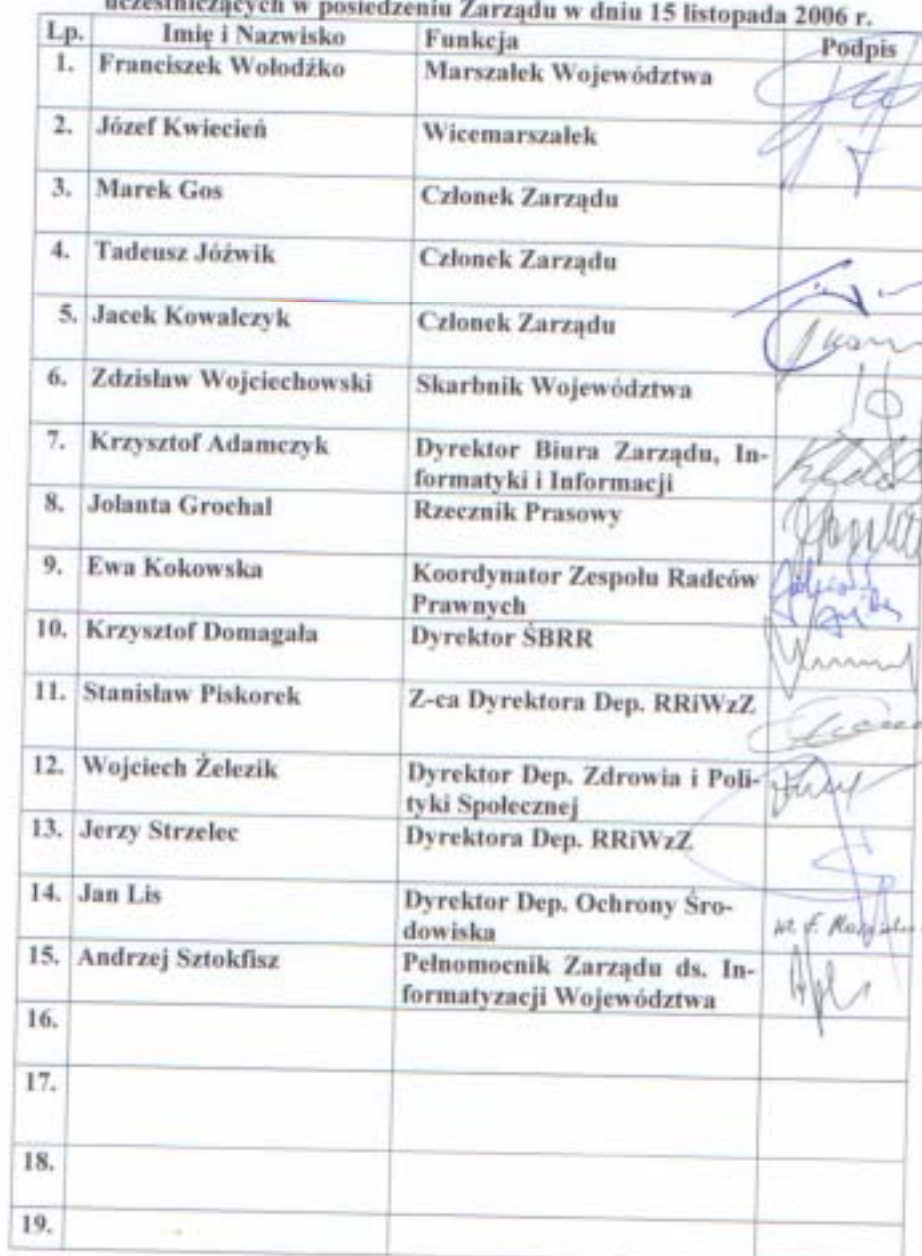 uczestniczących w posiedzeniu Zarządu w dniu 15 listopada 2006 r.
Lp. Imię i Nazwisko Funkcja Podpis
1. Franciszek Wołodźko Marszałek Województwa
2. Józef Kwiecień Wicemarszałek
3. Marek Gos Członek Zarządu
4. Tadeusz Jóźwik Członek Zarządu
5. Jacek Kowalczyk Członek Zarządu
6. Zdzisław Wojciechowski Skarbnik Województwa
7. Krzysztof Adamczyk Dyrektor Biura Zarządu, In-
formatyki i Informacji
8. Jolanta Grochal Rzecznik Prasowy
9. Ewa Kokowska Koordynator Zespołu Radców
Prawnych
10. Krzysztof Domagała Dyrektor ŚBRR
11. Stanisław Piskorek Z-ca Dyrektora Dep. RRiWzZ
12. Wojciech Żelezik Dyrektor Dep. Zdrowia i Poli-
tyki Społecznej
13. Jerzy Strzelec Dyrektora Dep. RRiWzZ
14. Jan Lis Dyrektor Dep. Ochrony Śro-
dowiska
15. Andrzej Sztokfisz Pełnomocnik Zarządu ds. In-
formatyzacji Województwa
16.
17.
18.
19.